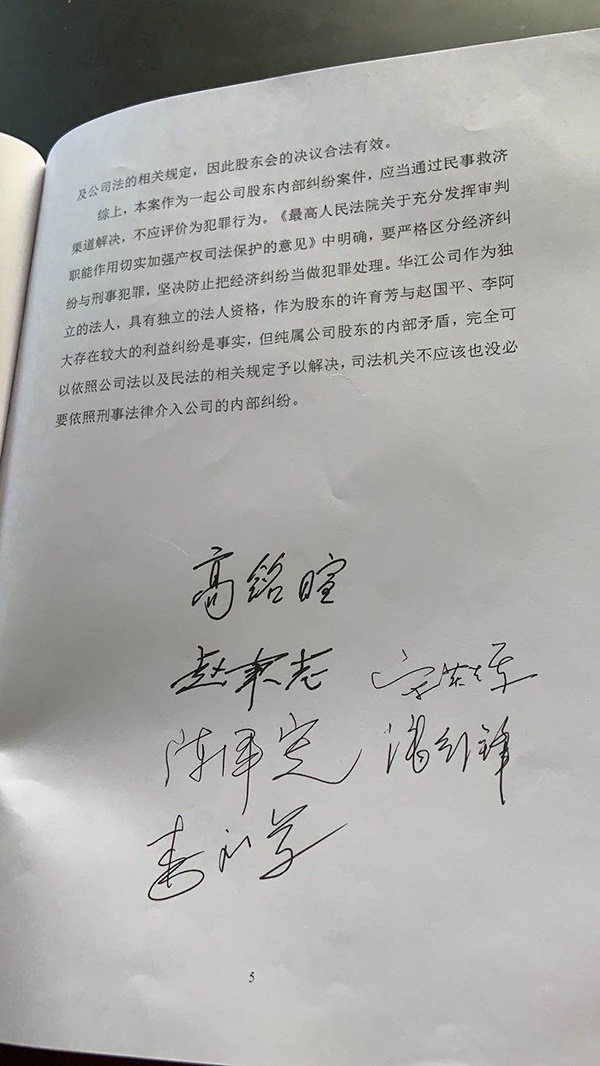 及公司法的相关规定，因此股东会的决议合法有效。
综上，本案作为一起公司股东内部纠纷案件，应当通过民事救济
渠道解决，不应评价为犯罪行为。《最高人民法院关于充分发挥审判
职能作用切实加强产权司法保护的意见》中明确，要严格区分经济纠
纷与刑事犯罪，坚决防止把经济纠纷当做犯罪处理。华江公司作为独
立的法人，具有独立的法人资格，作为股东的许育芳与赵国平、李阿
大存在较大的利益纠纷是事实，但纯属公司股东的内部矛盾，完全可
以依照公司法以及民法的相关规定予以解决，司法机关不应该也没必
要依照刑事法律介入公司的内部纠纷。
高铭暄
赵秉志
5